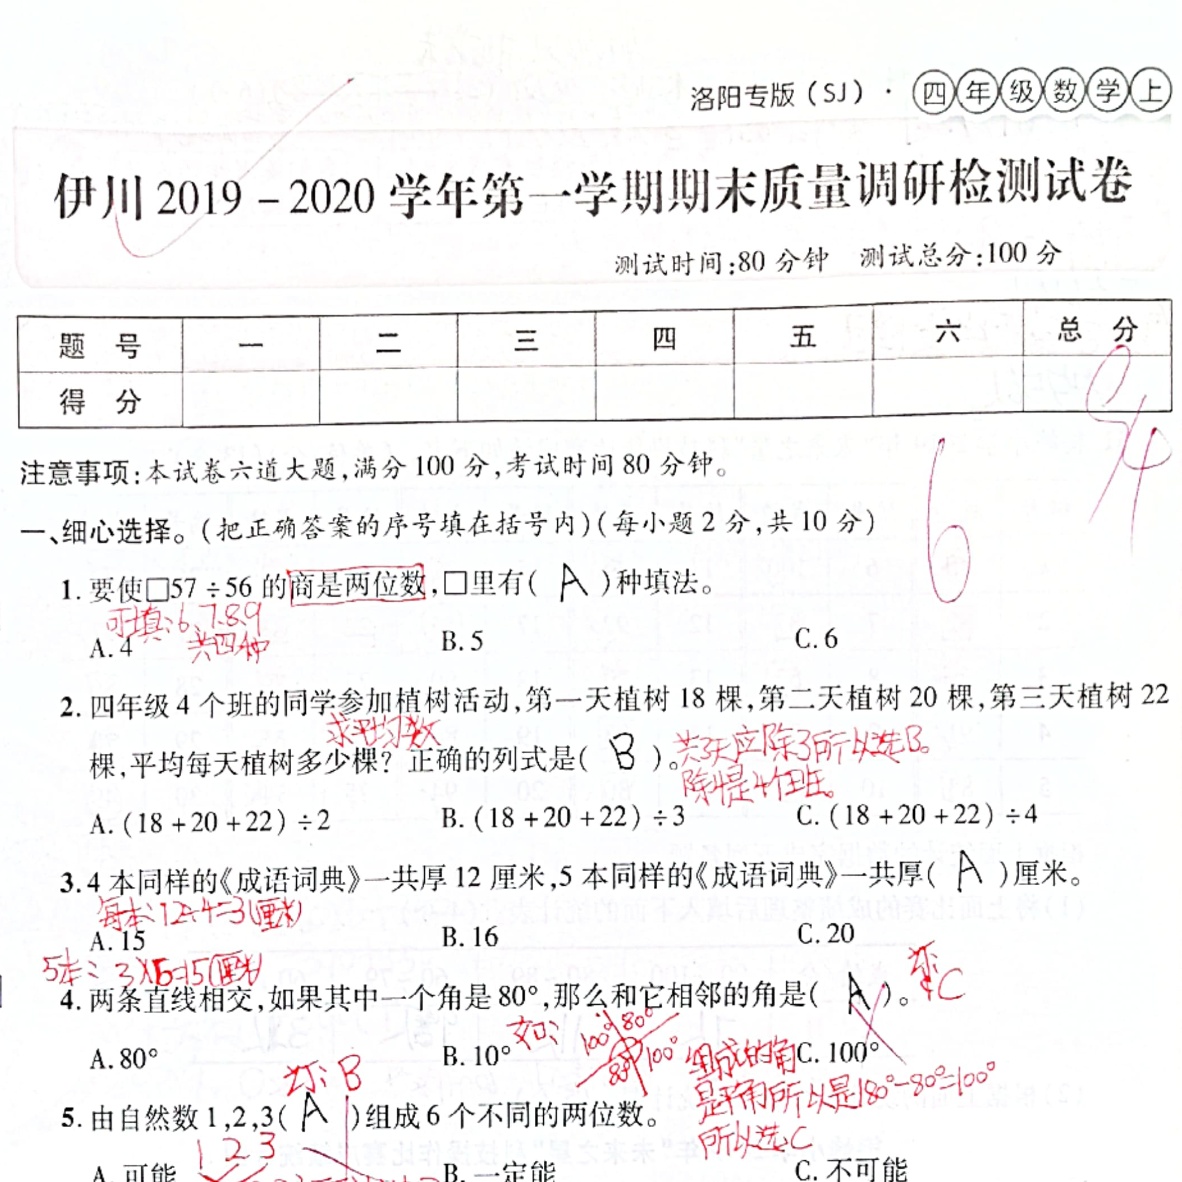 洛阳专版(SJ)·四年级数学上
伊川2019-2020学年第一学期期末质量调研检测试卷
测试时间:80分钟 测试总分:100分
题号 一 二 三 四 五 六 总分
得分
94
注意事项:本试卷六道大题,满分100分,考试时间80分钟。
6
一、细心选择。(把正确答案的序号填在括号内)(每小题2分,共10分)
1.要使□57÷56的商是两位数,□里有( A )种填法。
可填:6、7.8.9
共四种
A.4 B.5 C.6
2.四年级4个班的同学参加植树活动,第一天植树18棵,第二天植树20棵,第三天植树22
求平均数
棵,平均每天植树多少棵?正确的列式是( B )。
共3天应除3所以选B。
A.(18+20+22)÷2 B.(18+20+22)÷3 C.(18+20+22)÷4
3.4本同样的《成语词典》一共厚12厘米,5本同样的《成语词典》一共厚( A )厘米。
每本:12÷4=3(厘米)
A.15 B.16 C.20
5本:3×5=15(厘米)
4.两条直线相交,如果其中一个角是80°,那么和它相邻的角是( A )。
C
如: 100° 80°
80° 100°
组成的角
A.80° B.10° C.100°
是平角所以是180°-80°=100°
所以选C
B
5.由自然数1,2,3( A )组成6个不同的两位数。
1 2 3
A.可能 B.一定能 C.不可能